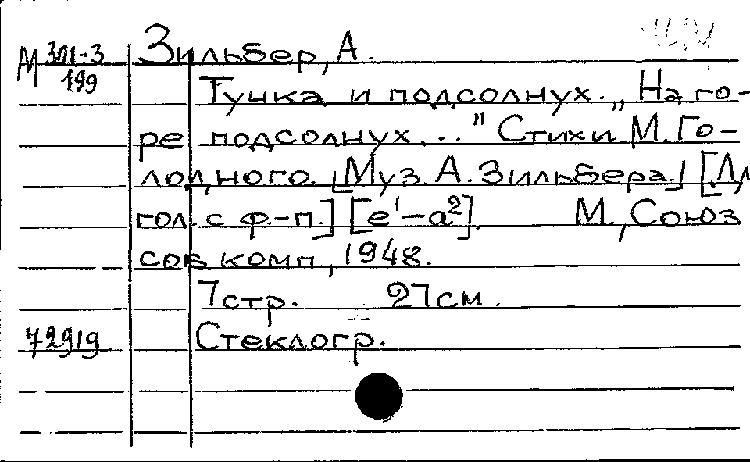 М 301-3
199
Зильбер, А.
Тучка и подсолнух. „На го-
ре подсолнух..." Стихи М. Го-
лодного. [Муз. А. Зильбера.] [Дл
гол. с ф-п.] [e¹-a²]. М., Союз
сов. комп., 1948.
7 стр. 27 см.
72919
Стеклогр.